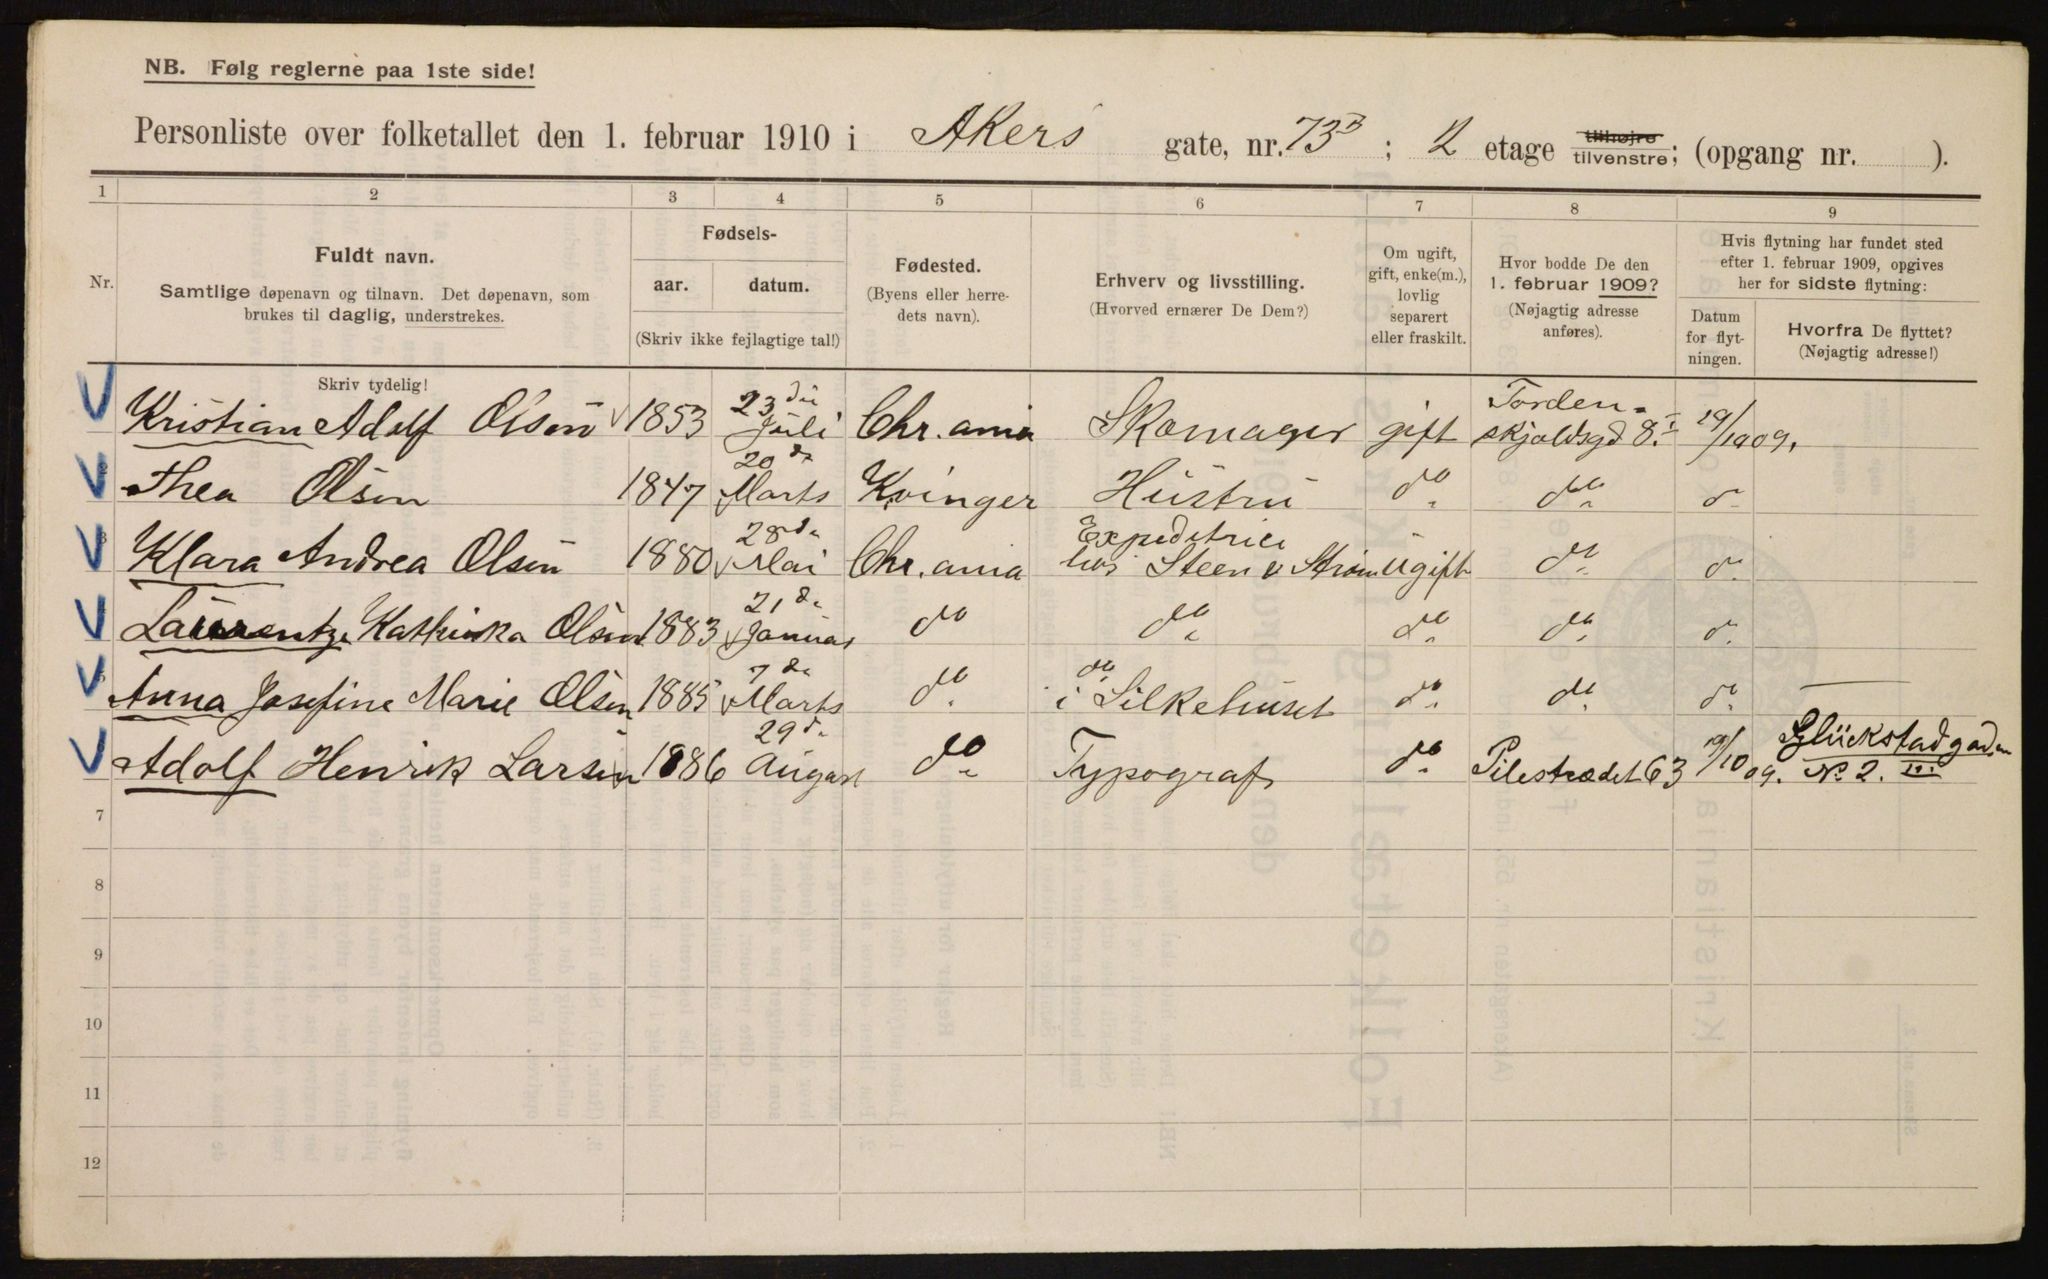 NB. Følg reglerne paa 1ste side!
Personliste over folketallet den 1. februar 1910 i Akers gate, nr. 73B ; 2 etage tilhøjre tilvenstre; (opgang nr. ).
1 2 3 4 5 6 7 8 9
Nr.
Fuldt navn.
Samtlige døpenavn og tilnavn. Det døpenavn, som
brukes til daglig, understrekes.
Skriv tydelig!
Fødsels-
aar. datum.
(Skriv ikke fejlagtige tal!)
Fødested.
(Byens eller herre-
dets navn).
Erhverv og livsstilling.
(Hvorved ernærer De Dem?)
Om ugift,
gift, enke(m.),
lovlig
separert
eller fraskilt.
Hvor bodde De den
1. februar 1909?
(Nøjagtig adresse
anføres).
Hvis flytning har fundet sted
efter 1. februar 1909, opgives
her for sidste flytning:
Datum
for flyt-
ningen.
Hvorfra De flyttet?
(Nøjagtig adresse!)
Kristian Adolf Olsen 1853 23de Juli Chr.ania Skomager gift Torden-
skjoldsgd 8.I 19/10 09.
Thea Olsen 1847 20de Marts Kvinger Hustru do do do
Klara Andrea Olsen 1880 28de Mai Chr.ania Expeditrice
hos Steen & Strøm Ugift do do
Laurentze Kathinka Olsen 1883 21de Januar do do do do do
Anna Josefine Marie Olsen 1885 7de Marts do do
i Silkehuset do do do
Adolf Henrik Larsen 1886 29de August do Typograf do Pilestrædet 63 19/10 09. Glückstadgaden
No 2. II.
7
8
9
10
11
12